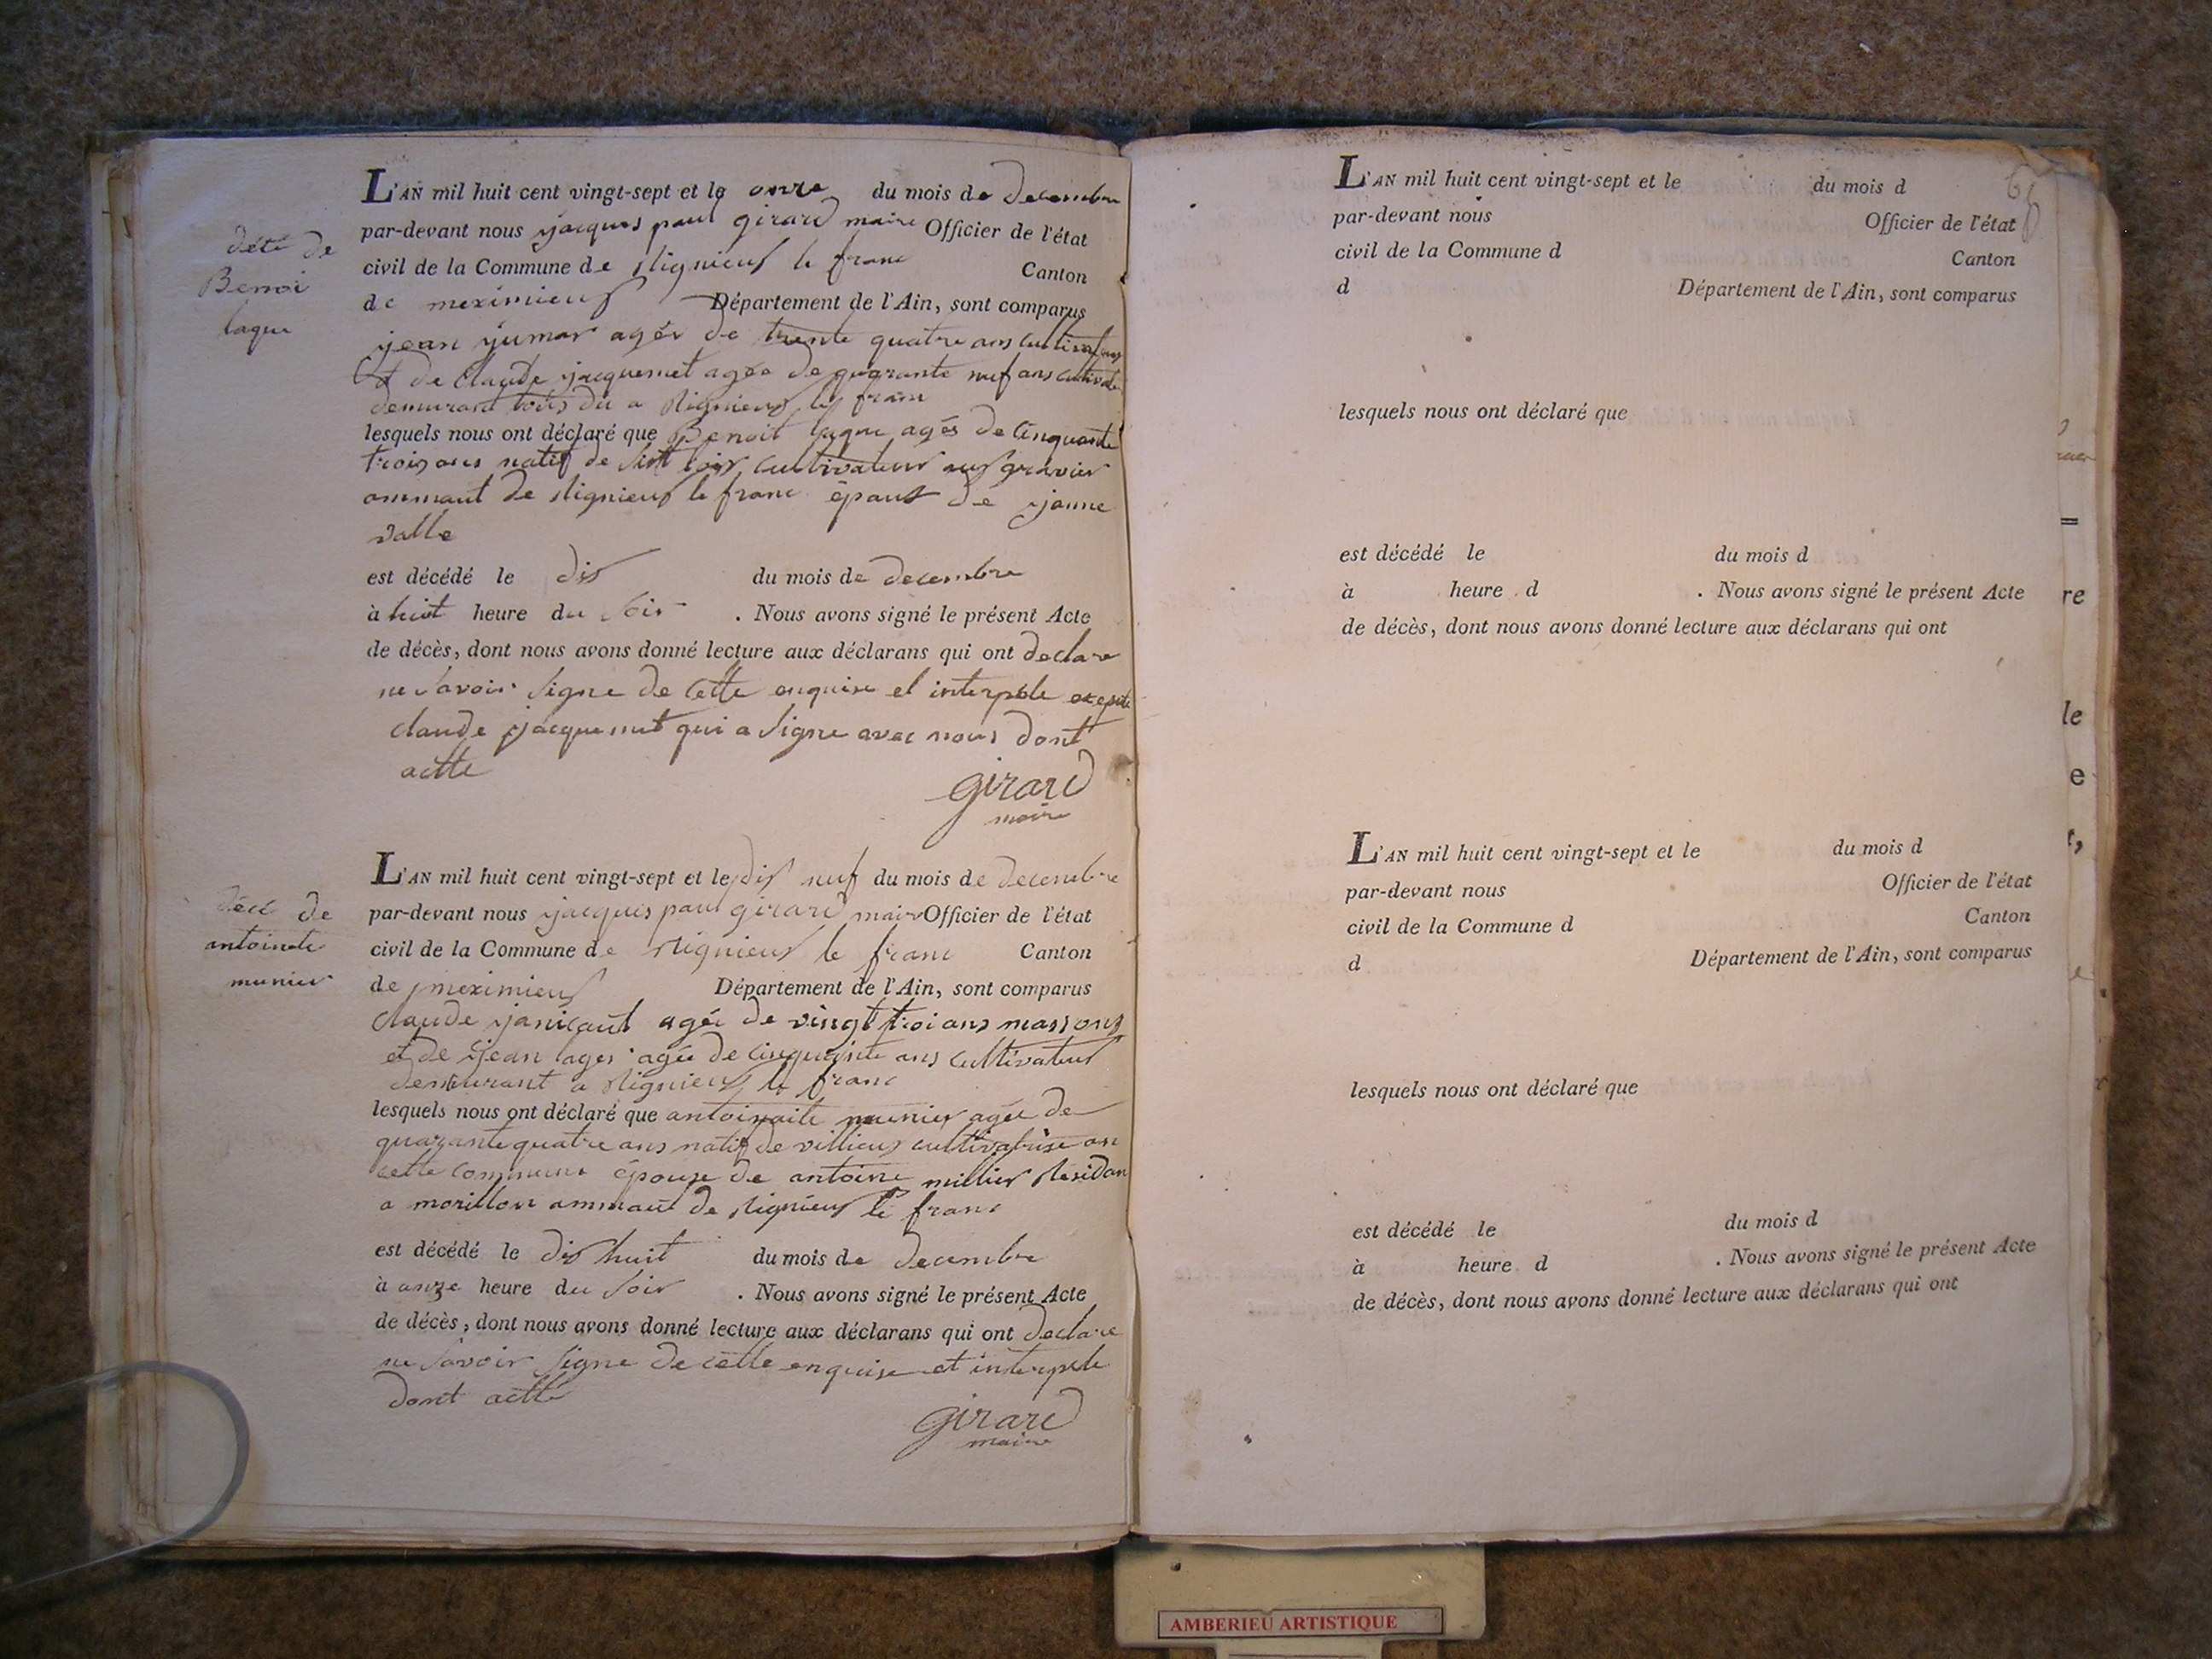 L'AN mil huit cent vingt-sept et le onze du mois de decembre
par-devant nous jacques paul girard maire Officier de l'état
civil de la Commune de rignieux le franc Canton
de meximieux Département de l'Ain, sont comparus
jean jumar agée de trente quatre ans cultivateur
Et de Claude jacquemet agée de quarante neuf ans
demurant tous du a rignieux le franc
lesquels nous ont déclaré que Benoit lagne agés de Cinquante
trois ans natif de cultivateur aux gravier
ammaut de rignieux le franc épaux de janne
valle
est décédé le dix du mois de decembre
à huit heure du Soir . Nous avons signé le présent Acte
de décès, dont nous avons donné lecture aux déclarans qui ont declare
ne Savoir Signe de Cette enquise et interpele
claude jacquemet qui a Signe avec nous dont
actte
girard
maire
de
Benoi
lagne
L'AN mil huit cent vingt-sept et le dix neuf du mois de decembre
par-devant nous jacques paul girard maire Officier de l'état
civil de la Commune de rignieux le franc Canton
de meximieux Département de l'Ain, sont comparus
claude agée de vingt troi ans massons
et de jean agée de cinquante ans cultivateur
demurant a rignieux le franc
lesquels nous ont déclaré que munier agée de
quarante quatre ans natif de villieux cultivatrise an
cette commune épouse de antoine millier
a morillon ammaut de rignieux le franc
est décédé le dix huit du mois de decembre
à anze heure du Soir . Nous avons signé le présent Acte
de décès, dont nous avons donné lecture aux déclarans qui ont declare
ne Savoir Signe de cette enquise et interpele
dont actte
girard
maire
de
antoinete
munier
L'AN mil huit cent vingt-sept et le du mois d
par-devant nous Officier de l'état
civil de la Commune d Canton
d Département de l'Ain, sont comparus
lesquels nous ont déclaré que
est décédé le du mois d
à heure d . Nous avons signé le présent Acte
de décès, dont nous avons donné lecture aux déclarans qui ont
L'AN mil huit cent vingt-sept et le du mois d
par-devant nous Officier de l'état
civil de la Commune d Canton
d Département de l'Ain, sont comparus
lesquels nous ont déclaré que
est décédé le du mois d
à heure d . Nous avons signé le présent Acte
de décès, dont nous avons donné lecture aux déclarans qui ont
re
le
e
AMBERIEU ARTISTIQUE